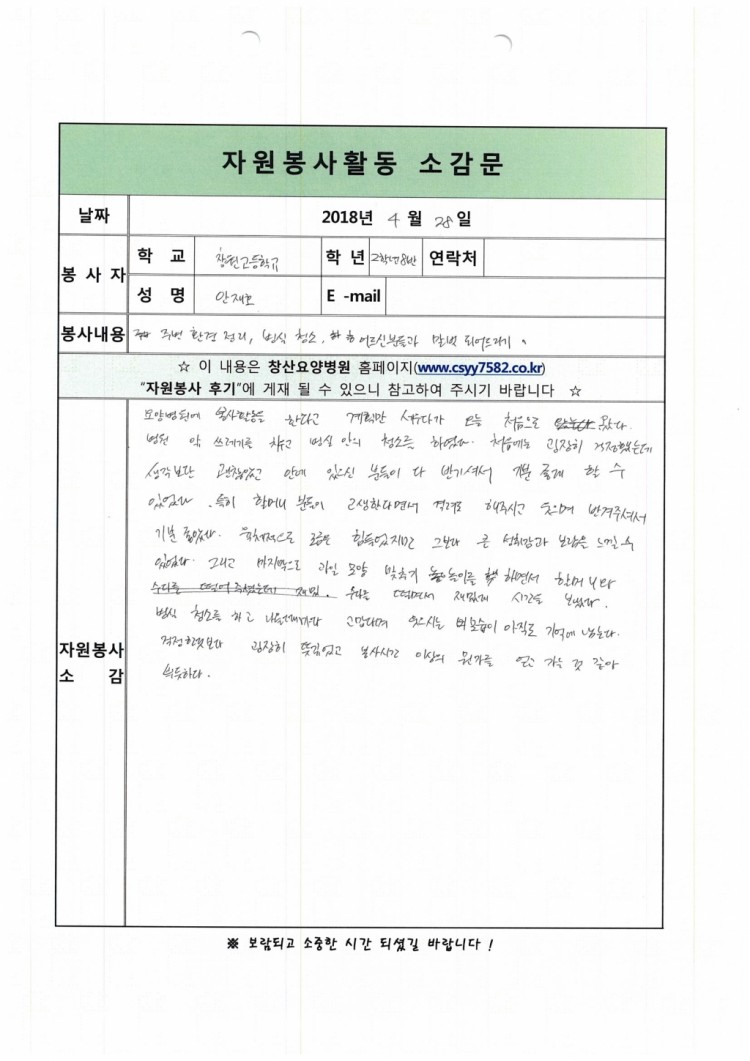 자원봉사활동 소감문
날짜 2018년 4 월 28 일
봉 사 자
학 교 창원고등학교 학 년 2학년8반 연락처
성 명 안재호 E -mail
봉사내용 주변 환경 정리, 병실 청소, 어르신분들과 말벗 되어드리기.
☆ 이 내용은 창산요양병원 홈페이지(www.csyy7582.co.kr)
"자원봉사 후기"에 게재 될 수 있으니 참고하여 주시기 바랍니다 ☆
자원봉사
소 감
요양병원에 봉사활동을 한다고 계획만 세우다가 오늘 처음으로 왔다.
병원 앞 쓰레기를 치우고 병실 안의 청소를 하였다. 처음에는 굉장히 걱정했는데
생각보단 괜찮았고 안에 있으신 분들이 다 반기셔서 기분 좋게 할 수
있었다. 특히 할머니 분들이 고생한다면서 격려도 해주시고 웃으며 반겨주셔서
기분 좋았다. 육체적으로 조금은 힘들었지만 그보다 큰 성취감과 보람을 느낄 수
있었다. 그리고 마지막으로 과일 모양 맞추기 놀이를 하면서 할머니와
수다를 떨며 재밌게 시간을 보냈다.
병실 청소를 하고 나올때마다 고맙다며 웃으시는 모습이 아직도 기억에 남는다.
걱정한것보다 굉장히 뜻깊었고 봉사시간 이상의 뭔가를 얻고 가는 것 같아
뿌듯하다.
※ 보람되고 소중한 시간 되셨길 바랍니다 !